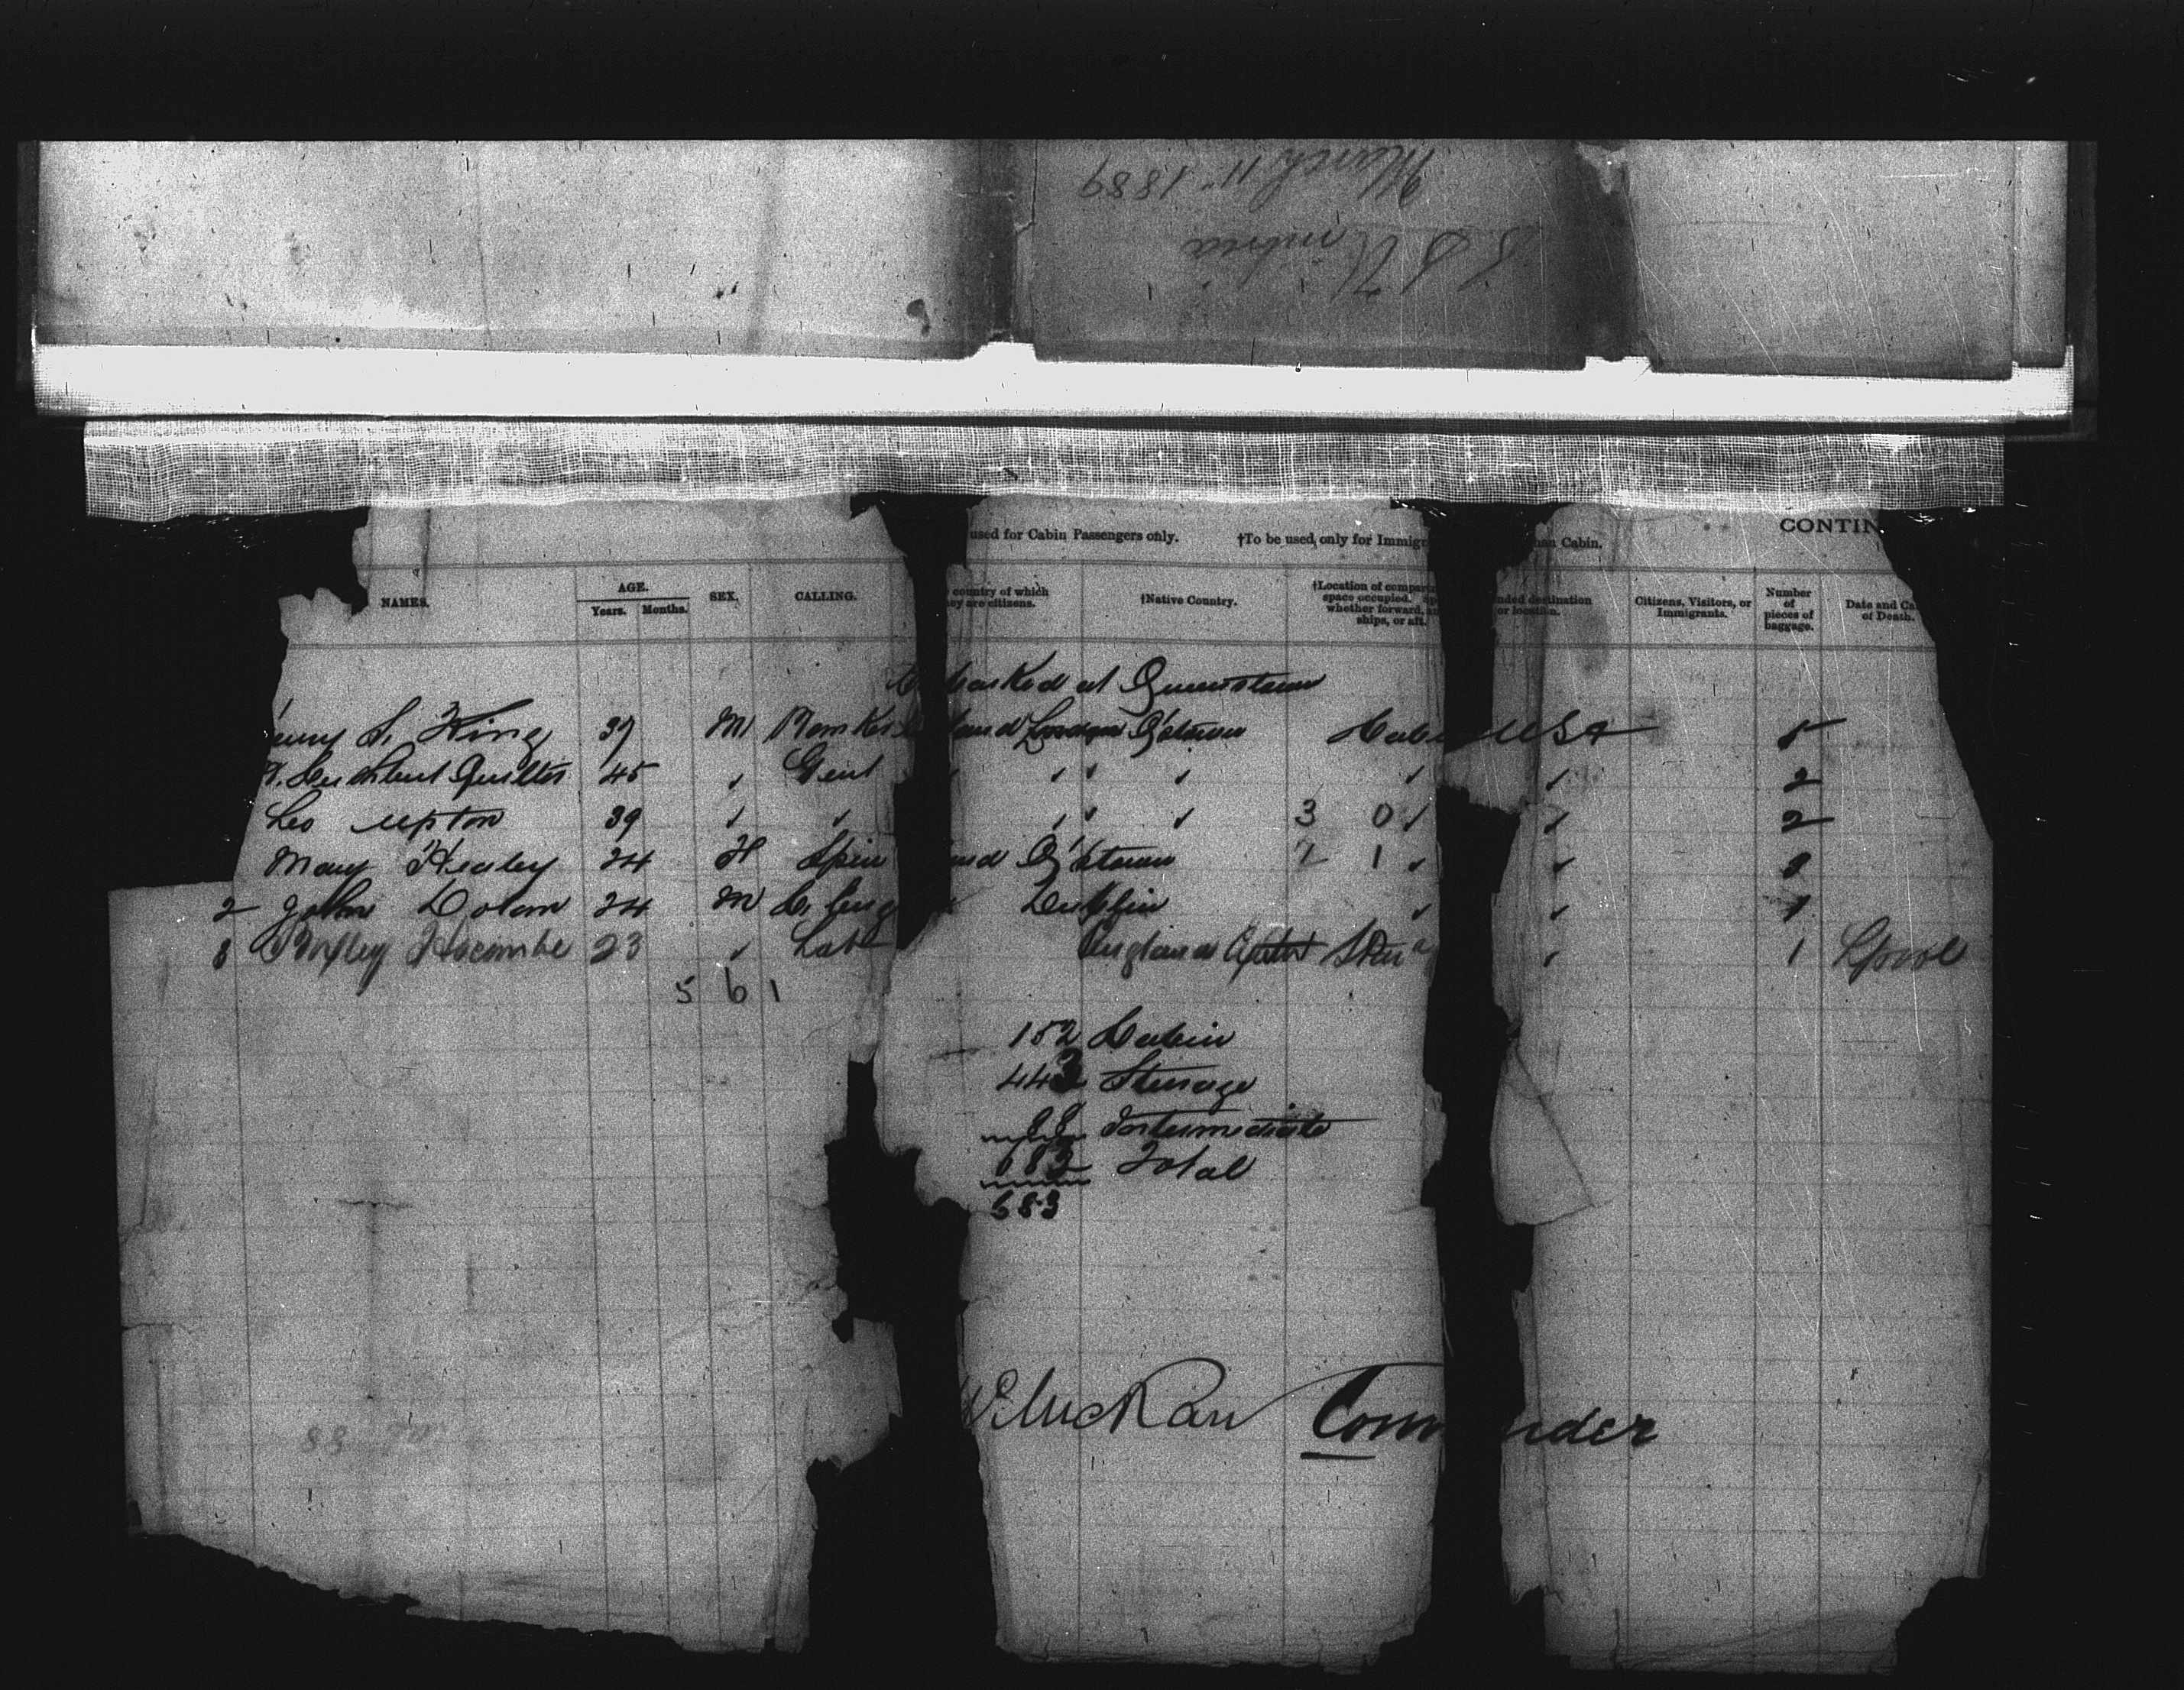 March 11" 1889
S S Umbria
CONTIN
used for Cabin Passengers only. †To be used only for Immigr han Cabin.
NAMES. AGE. Years. Months. SEX. CALLING. country of which ey are citizens. †Native Country. †Location of compar space occupied. whether forward, ships, or aft. nded destination or location. Citizens, Visitors, or Immigrants. Number of pieces of baggage. Date and Ca of Death.
barked at Queenstown
S. King 37 M Banker and London Q'stown Cabi USA 5
Quilter 45 " Gent " " " " " 2
Leo Upton 39 " " " " " 3 0 " " 2
Mary Healey 24 F Spin nd Q'stown 1 " "
2 John Dolan 24 M C. Eng Dublin " "
8 23 " Lab England " 1 Lpool
5 6 1
152 Cabin
443 Steerage
88 Intermediate
683 Total
683
W. McMickan Com nder